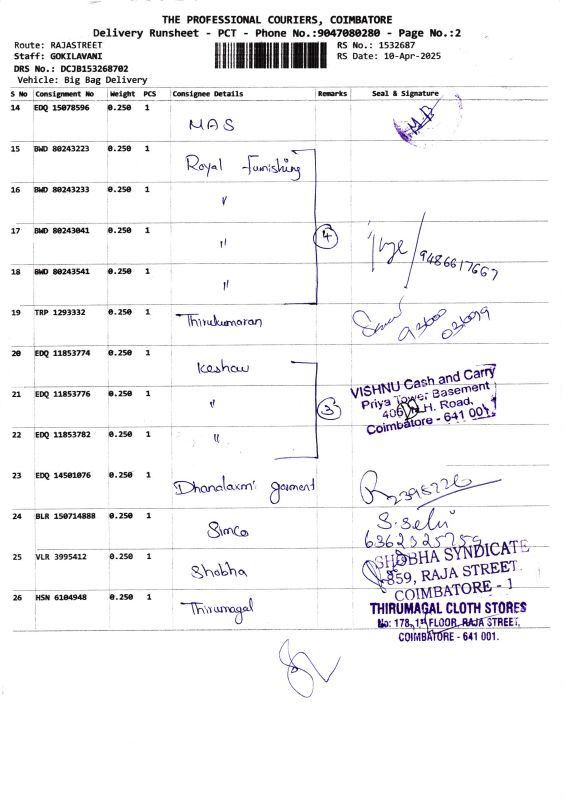 THE PROFESSIONAL COURIERS, COIMBATORE
Delivery Runsheet - PCT - Phone No.:9047080280 - Page No.:2
Route: RAJASTREET RS No.: 1532687
Staff: GOKILAVANI RS Date: 10-Apr-2025
DRS No.: DCJB153268702
Vehicle: Big Bag Delivery
S No Consignment No Weight PCS Consignee Details Remarks Seal & Signature
14 EDQ 15078596 0.250 1 MAS
15 BWD 80243223 0.250 1 Royal Furnishing
16 BWD 80243233 0.250 1 〃
17 BWD 80243041 0.250 1 〃 4 9486617667
18 BWD 80243541 0.250 1 〃
19 TRP 1293332 0.250 1 Thirukumaran
20 EDQ 11853774 0.250 1 Keshav
21 EDQ 11853776 0.250 1 〃 3 VISHNU Cash and Carry
Priya Tower Basement
H. Road,
Coimbatore - 641 001.
22 EDQ 11853782 0.250 1 〃
23 EDQ 14501076 0.250 1 Dhanalaxmi garment
24 BLR 150714888 0.250 1 Simco S. Selvi
25 VLR 3995412 0.250 1 Shobha SHOBHA SYNDICATE
859, RAJA STREET.
COIMBATORE - 1
26 HSN 6104948 0.250 1 Thirumagal THIRUMAGAL CLOTH STORES
No: 178, 1st FLOOR, RAJA STREET,
COIMBATORE - 641 001.